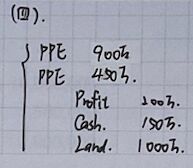 (四).
PPE 900万
PPE 450万.
Profit 200万.
Cash. 150万.
Land. 1000万.